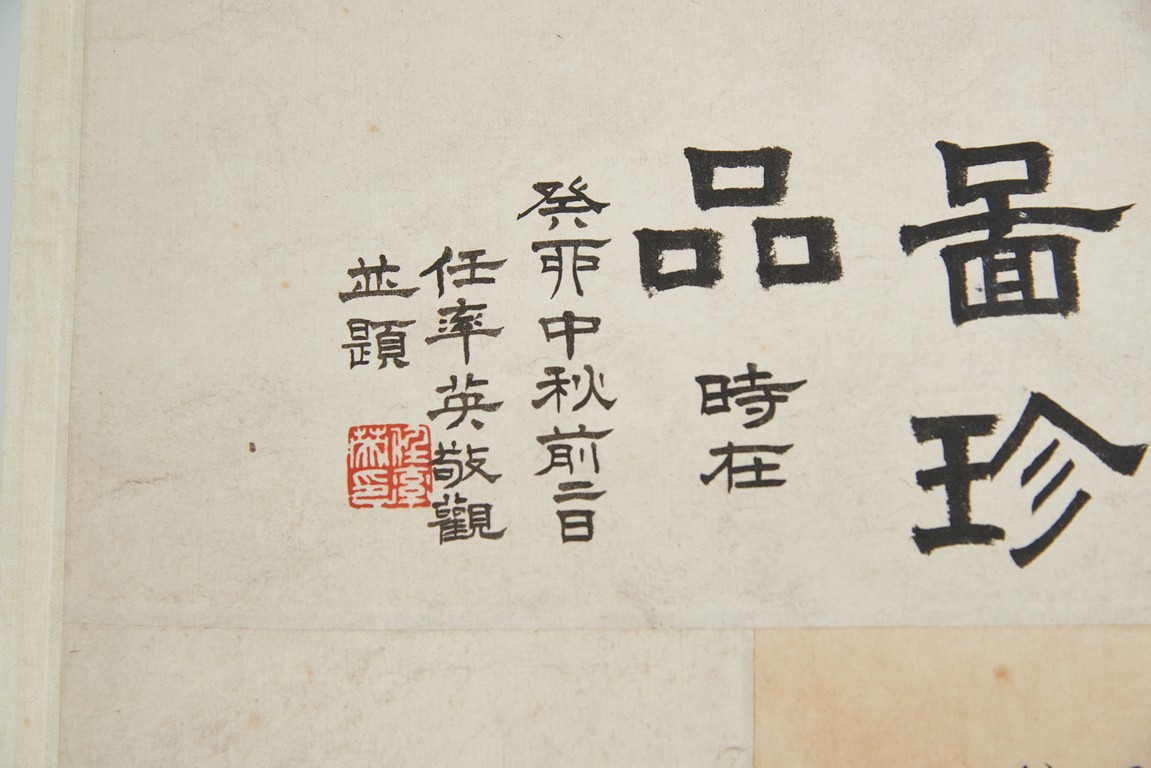 啚珍
品
時在
癸丣中秋前二日
任率英敬觀
並題
任率
英印